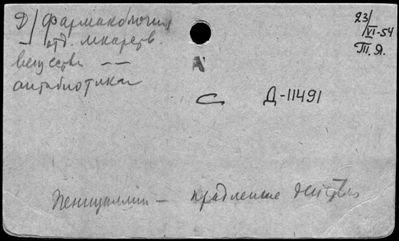 Д/ фармакология
— отд. лекарств.
веществ — —
антибиотики
23/VI-54
Т.Я.
А
С Д-11491
Пенициллин — продление действия